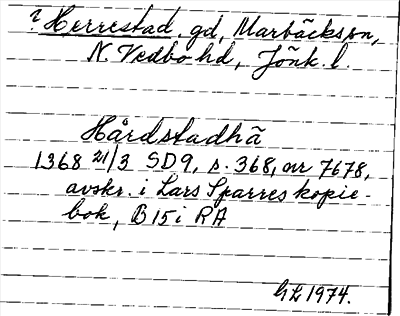 ? Herrestad. gd, Marbäcks sn,
N. Vedbo hd, Jönk. l.
Hårdstadhä
1368 21/3 SD9, s. 368, nr 7678,
avskr. i Lars Sparres kopie-
bok, B 15 i RA
GL 1974.